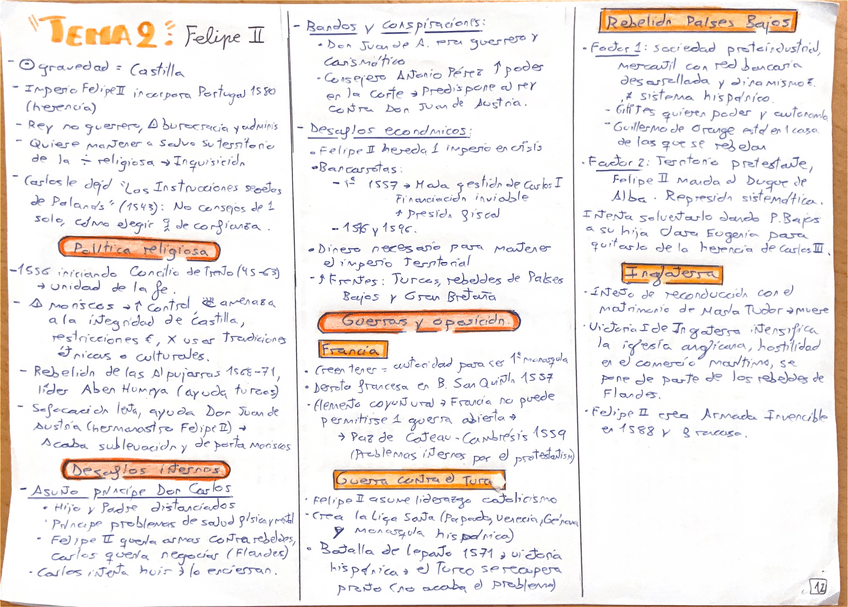 "TEMA 2": Felipe II
- ⊙ gravedad = Castilla
- Imperio Felipe II incorpora Portugal 1580
(herencia)
- Rey no guerrero, Δ burocracia y adminis
- Quiere mantener a salvo su territorio
de la ÷ religiosa → Inquisición
- Carlos le dejó "Las Instrucciones secretas
de Palamós" (1543): No consejos de 1
solo, cómo elegir de confianza.
Política religiosa
- 1556 iniciando Concilio de Trento (45-63)
→ unidad de la fe.
- Δ moriscos → ↑ control, amenaza
a la integridad de Castilla,
restricciones €, X usar tradiciones
étnicas o culturales.
- Rebelión de las Alpujarras 1568-71,
líder Aben Humeya (ayuda turcos)
- Sofocación lenta, ayuda Don Juan de
Austria (hermanastro Felipe II) →
Acaba sublevación y deporta moriscos
Desafíos internos
- Asunto príncipe Don Carlos
• Hijo y Padre distanciados
• Príncipe problemas de salud física y mental
• Felipe II quería armas contra rebeldes,
Carlos quería negociar (Flandes)
• Carlos intenta huir → lo encierran.
- Bandos y conspiraciones:
• Don Juan de A. era guerrero y
carismático
• Consejero Antonio Pérez ↑ poder
en la corte → Predispone al rey
contra Don Juan de Austria.
- Desafíos económicos:
• Felipe II hereda 1 imperio en crisis
• Bancarrotas:
- 1ª 1557 → Mala gestión de Carlos I
Financiación inviable
↑ Presión fiscal
- 1576 y 1596.
• Dinero necesario para mantener
el imperio territorial
- ↑ Frentes: Turcos, rebeldes de Países
Bajos y Gran Bretaña
Guerras y oposición
Francia
• Creen tener = autoridad para ser 1ª monarquía
• Derrota francesa en B. San Quintín 1557
• Elemento coyuntural → Francia no puede
permitirse 1 guerra abierta →
→ Paz de Cateau-Cambrésis 1559
(Problemas internos por el protestantismo)
Guerra contra el Turco
• Felipe II asume liderazgo catolicismo
- Crea la Liga Santa (Papado, Venecia, Génova
y monarquía hispánica)
• Batalla de Lepanto 1571 → victoria
hispánica → el Turco se recupera
pronto (no acaba el problema)
Rebelión Países Bajos
• Factor 1: sociedad protoindustrial,
mercantil con red bancaria
desarrollada y dinamismo €,
≠ sistema hispánico.
- Élites quieren poder y autonomía
- Guillermo de Orange está en 1 casa
de las que se rebelan
• Factor 2: Territorio protestante,
Felipe II manda al Duque de
Alba. Represión sistemática.
Intenta solventarlo dando P. Bajos
a su hija Clara Eugenia para
quitarlo de la herencia de Carlos III.
Inglaterra
• Intento de reconducción con el
matrimonio de María Tudor → muere
• Victoria I de Inglaterra intensifica
la iglesia anglicana, hostilidad
en el comercio marítimo, se
pone de parte de los rebeldes de
Flandes.
• Felipe II crea Armada Invencible
en 1588 y fracaso.
12